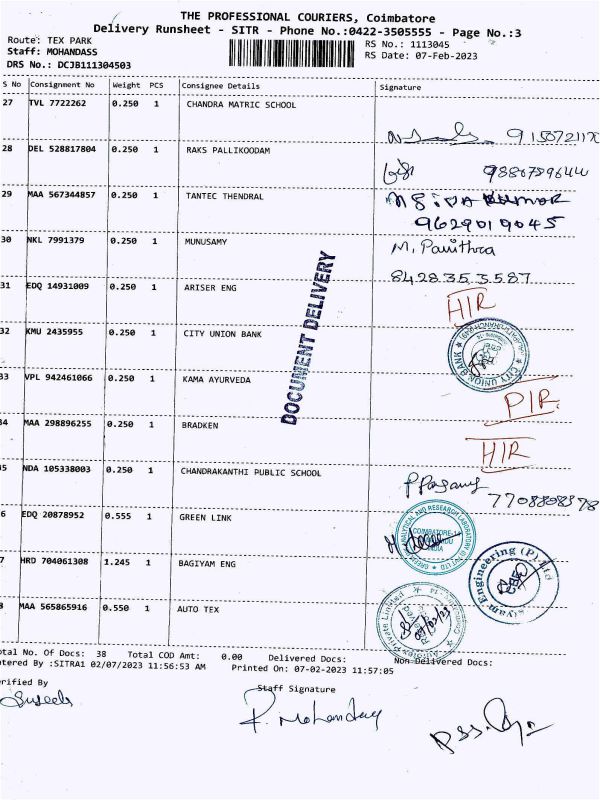 THE PROFESSIONAL COURIERS, Coimbatore
Delivery Runsheet - SITR - Phone No.:0422-3505555 - Page No.:3
Route: TEX PARK
Staff: MOHANDASS
DRS No.: DCJB111304503
RS No.: 1113045
RS Date: 07-Feb-2023
S No Consignment No Weight PCS Consignee Details Signature
27 TVL 7722262 0.250 1 CHANDRA MATRIC SCHOOL
28 DEL 528817804 0.250 1 RAKS PALLIKOODAM
29 MAA 567344857 0.250 1 TANTEC THENDRAL
9629019045
30 NKL 7991379 0.250 1 MUNUSAMY M. Pavithra
8428353587
31 EDQ 14931009 0.250 1 ARISER ENG
HIR
32 KMU 2435955 0.250 1 CITY UNION BANK
CITY UNION BANK
33 VPL 942461066 0.250 1 KAMA AYURVEDA
PIR
34 MAA 298896255 0.250 1 BRADKEN
HIR
35 NDA 105338003 0.250 1 CHANDRAKANTHI PUBLIC SCHOOL
6 EDQ 20878952 0.555 1 GREEN LINK
ANALYTICAL AND RESEARCH LABORATORY
COIMBATORE-14
INDIA
7 HRD 704061308 1.245 1 BAGIYAM ENG
Engineering (P) Ltd
8 MAA 565865916 0.550 1 AUTO TEX
DOCUMENT DELIVERY
otal No. Of Docs: 38 Total COD Amt: 0.00 Delivered Docs: Non Delivered Docs:
ntered By :SITRA1 02/07/2023 11:56:53 AM Printed On: 07-02-2023 11:57:05
erified By
Staff Signature
R. Mohandass